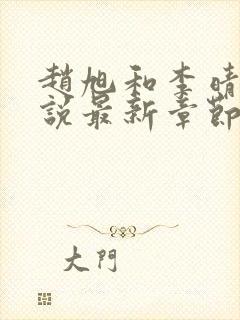 趙旭和李晴
說最新章節
大門